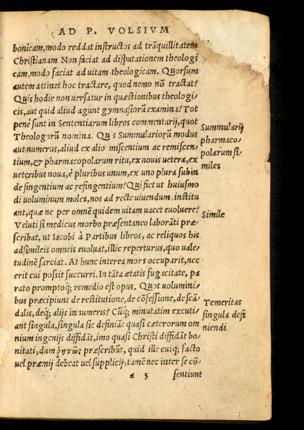 AD P. VOLSIVM
bonicam, modo reddat instructos ad trāquillitatem
Christianam Non faciat ad disputationem theologi
cam, modo faciat ad uitam theologicam. Quorsum
autem attinet hoc tractare, quod nemo nō tractat?
Quis hodie non uersatur in quæstionibus theologi-
cis, aut quid aliud agunt gymnasiorū examina? Tot
penè sunt in Sententiarum libros commentarij, quot
Theologorū nomina. Quis Summulariorū modus
aut numerus, aliud ex alio miscentium ac remiscen-
tium, & pharmacopolarum ritu, ex nouis uetera, ex
ueteribus noua, è pluribus unum, ex uno plura subin
de fingentium ac refingentium? Qui fict ut huiusmo
di uoluminum moles, nos ad recte uiuendum institu
ant, quæ ne per omnē quidem uitam uacet euoluere?
Veluti si medicus morbo præsentaneo laborāti præ-
scribat, ut Iacobi à Partibus libros, ac reliquos his
adsimileis omneis euoluat, illic reperturus, quo uale-
tudinē sarciat. At hunc interea mors occuparit, nec
erit cui possit succurri. In tāta ætatis fugacitate, pa
rato promptoq; remedio est opus. Quot uolumini-
bus præcipiunt de restitutione, de cōfessione, de scā
dalis, deq; alijs innumeris? Cūq; minutatim excuti-
ant singula, singula sic definiāt quasi cæterorum om
nium ingenijs diffidāt, imo quasi Christi diffidāt bo-
nitati, dum præscribūt, quid ille cuiq; facto
uel præmij debeat uel supplicij, tamē nec inter se cō-
a 3 sentiunt
Summularij
pharmaco-
polarum si-
miles
Simile
Temeritas
singula defi
niendi